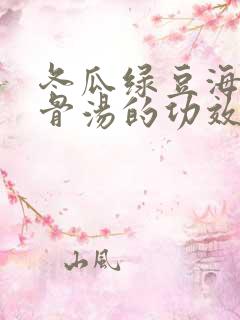 冬瓜绿豆海
骨汤的功效
山风